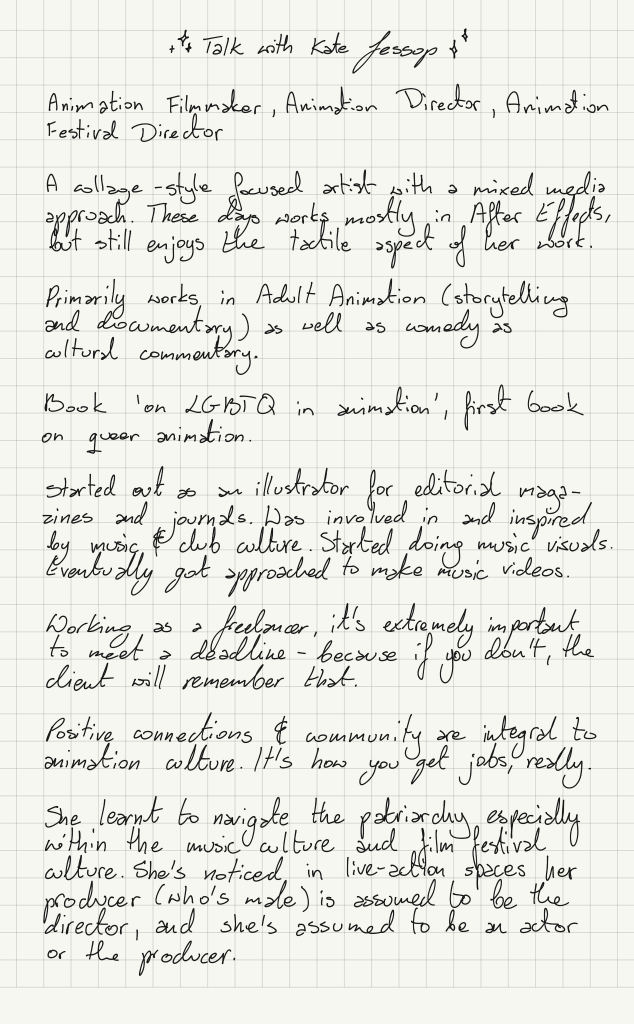 Talk with Kate Jessop
Animation Filmmaker, Animation Director, Animation
Festival Director
A collage-style focused artist with a mixed media
approach. These days works mostly in After Effects,
but still enjoys the tactile aspect of her work.
Primarily works in Adult Animation (storytelling
and documentary) as well as comedy as
cultural commentary.
Book 'on LGBTQ in animation', first book
on queer animation.
Started out as an illustrator for editorial maga-
zines and journals. Was involved in and inspired
by music & club culture. Started doing music visuals.
Eventually got approached to make music videos.
Working as a freelancer, it's extremely important
to meet a deadline - because if you don't, the
client will remember that.
Positive connections & community are integral to
animation culture. It's how you get jobs, really.
She learnt to navigate the patriarchy especially
within the music culture and film festival
culture. She's noticed in live-action spaces her
producer (who's male) is assumed to be the
director, and she's assumed to be an actor
or the producer.